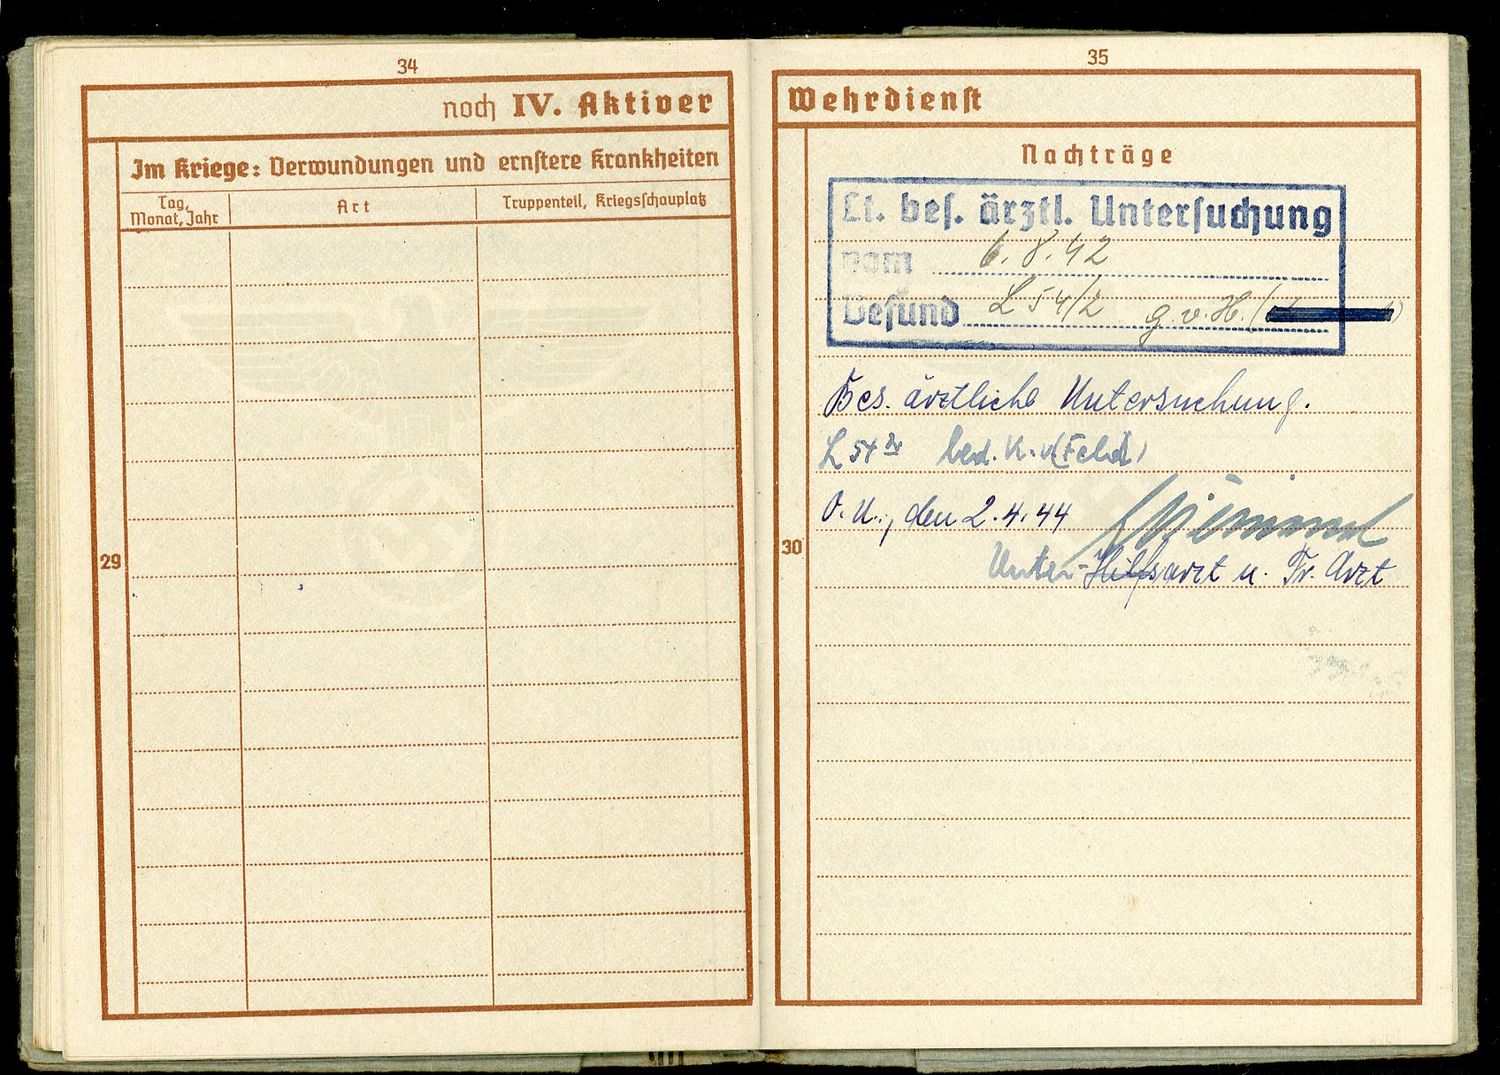 34
noch IV. Aktiver
Im Kriege: Verwundungen und ernstere Krankheiten
Tag, Monat, Jahr
Art
Truppenteil, Kriegsschauplatz
29
35
Wehrdienst
Nachträge
30
Lt. bes. ärztl. Untersuchung
vom 6.8.42
Befund L 54/2 g.v.H. (
Bes. ärztliche Untersuchung.
L 54 bed. K.v. (Feld)
O.U., den 2.4.44
Unter-Hilfsarzt u. Tr. Arzt